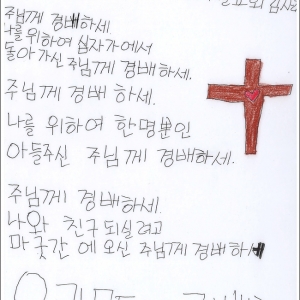 주님께 경배하세
나를 위하여 십자가에서
돌아가신 주님께 경배하세.
주님께 경배 하세.
나를 위하여 한명뿐인
아들주신 주님께 경배하세.
주님께 경배하세.
나와 친구 되실려고
마굿간에 오신 주님께 경배하세